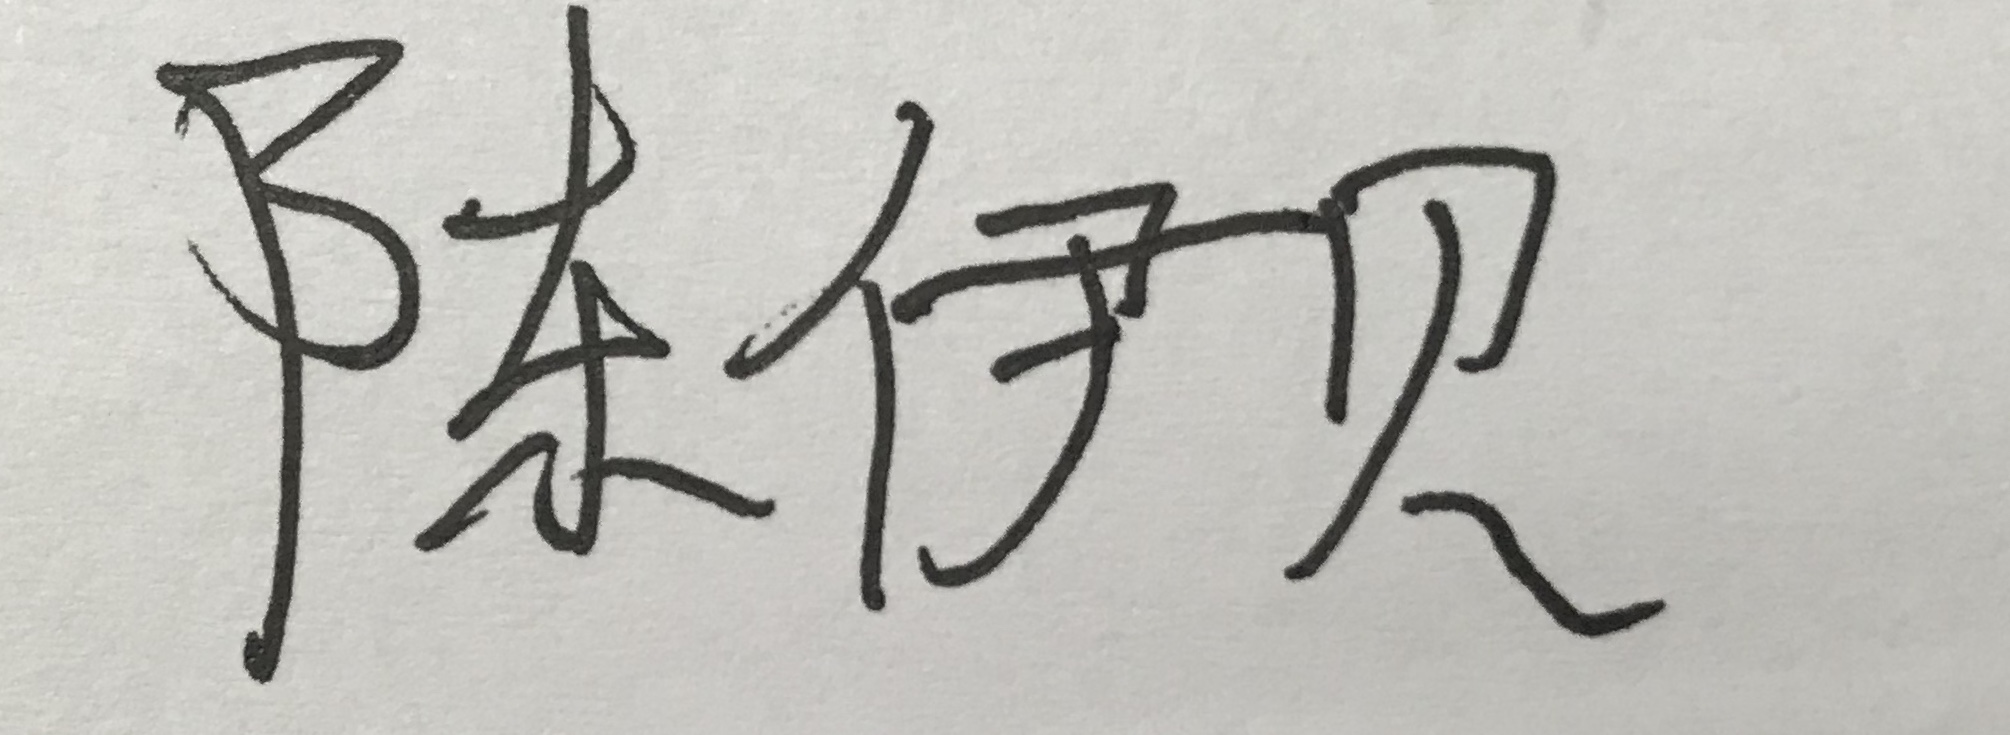 陈伊贝